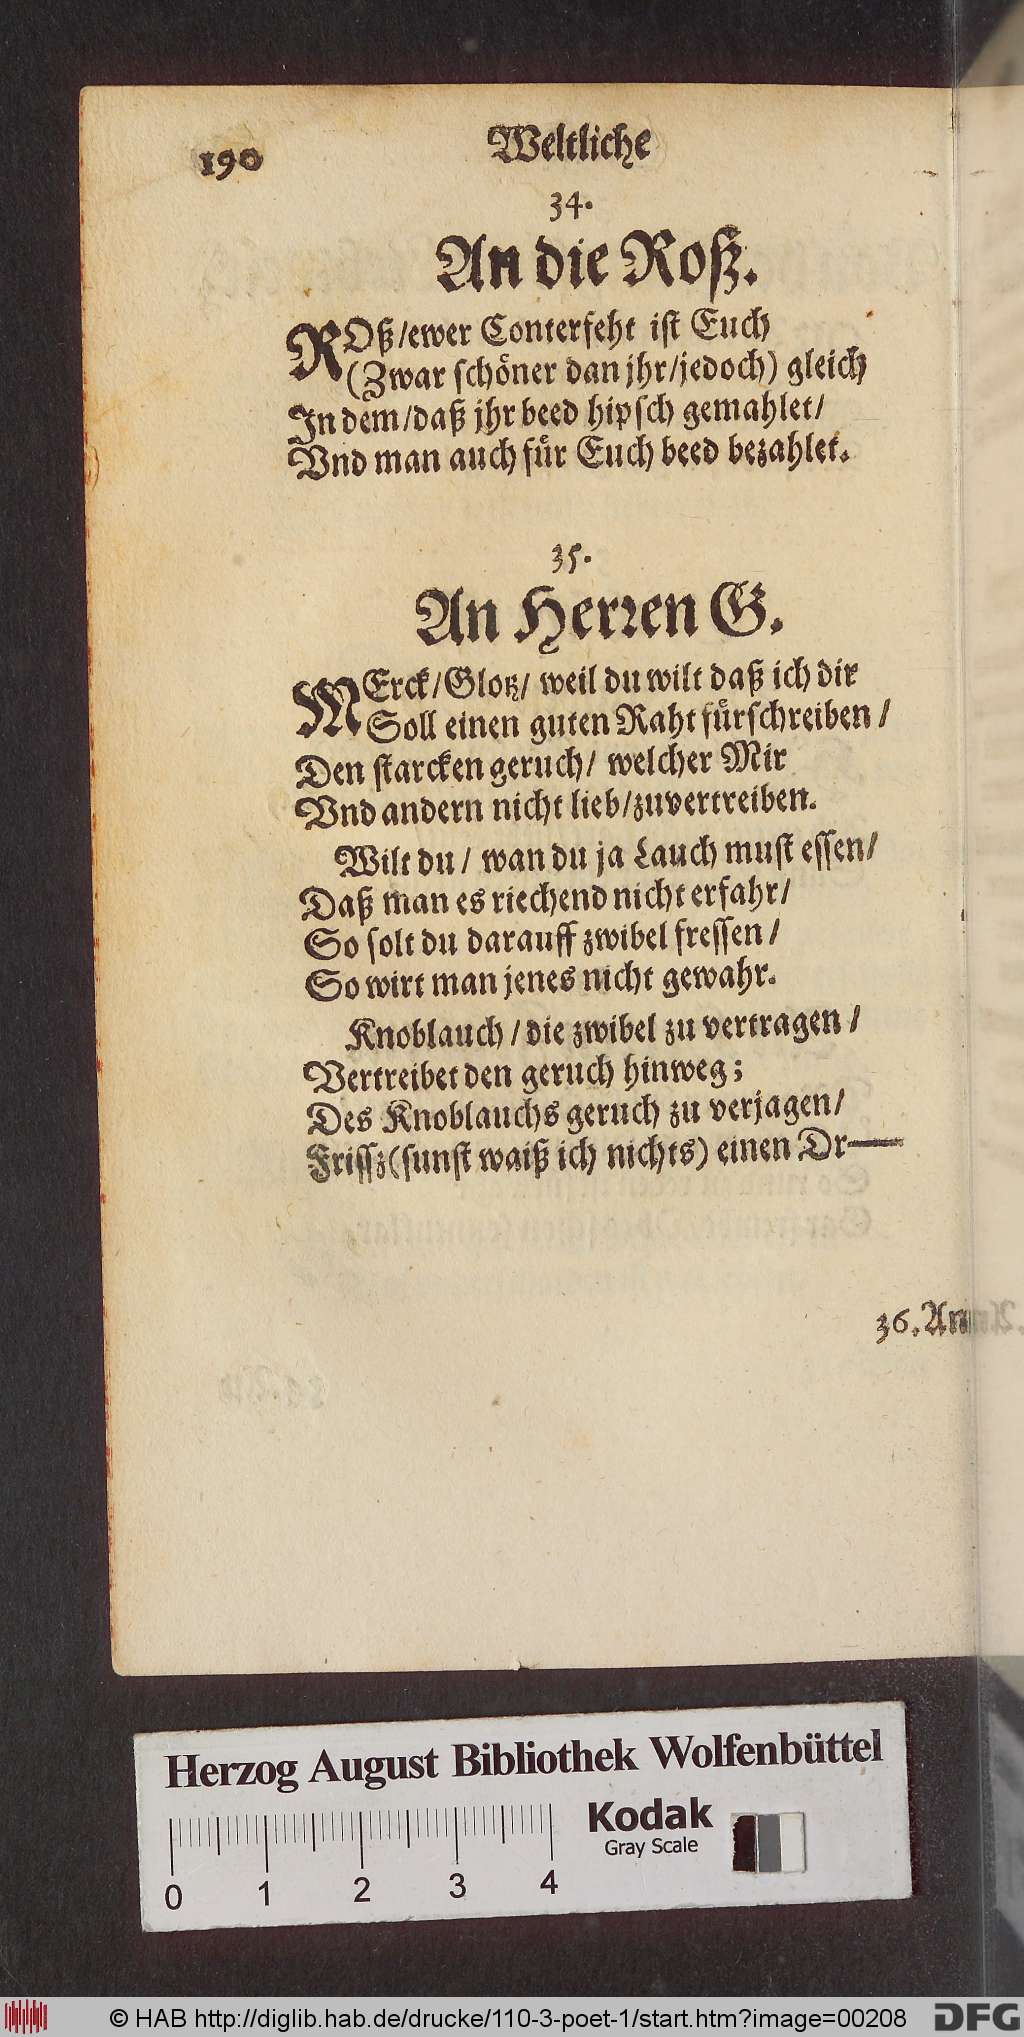 190
Weltliche
34.
An die Roß.
ROß/ewer Conterfeht ist Euch
(Zwar schöner dan jhr/jedoch) gleich
In dem/daß jhr beed hipsch gemahlet/
Vnd man auch für Euch beed bezahlet.
35.
An Herren G.
MErck/Glotz/ weil du wilt daß ich dir
Soll einen guten Raht fürschreiben/
Den starcken geruch/ welcher Mir
Vnd andern nicht lieb/zuvertreiben.
Wilt du/ wan du ja Lauch must essen/
Daß man es riechend nicht erfahr/
So solt du darauff zwibel fressen/
So wirt man jenes nicht gewahr.
Knoblauch/die zwibel zu vertragen/
Vertreibet den geruch hinweg;
Des Knoblauchs geruch zu verjagen/
Frissz(sunst waiß ich nichts) einen Dr—
36. An
Herzog August Bibliothek Wolfenbüttel
Kodak
Gray Scale
0 1 2 3 4
© HAB http://diglib.hab.de/drucke/110-3-poet-1/start.htm?image=00208
DFG